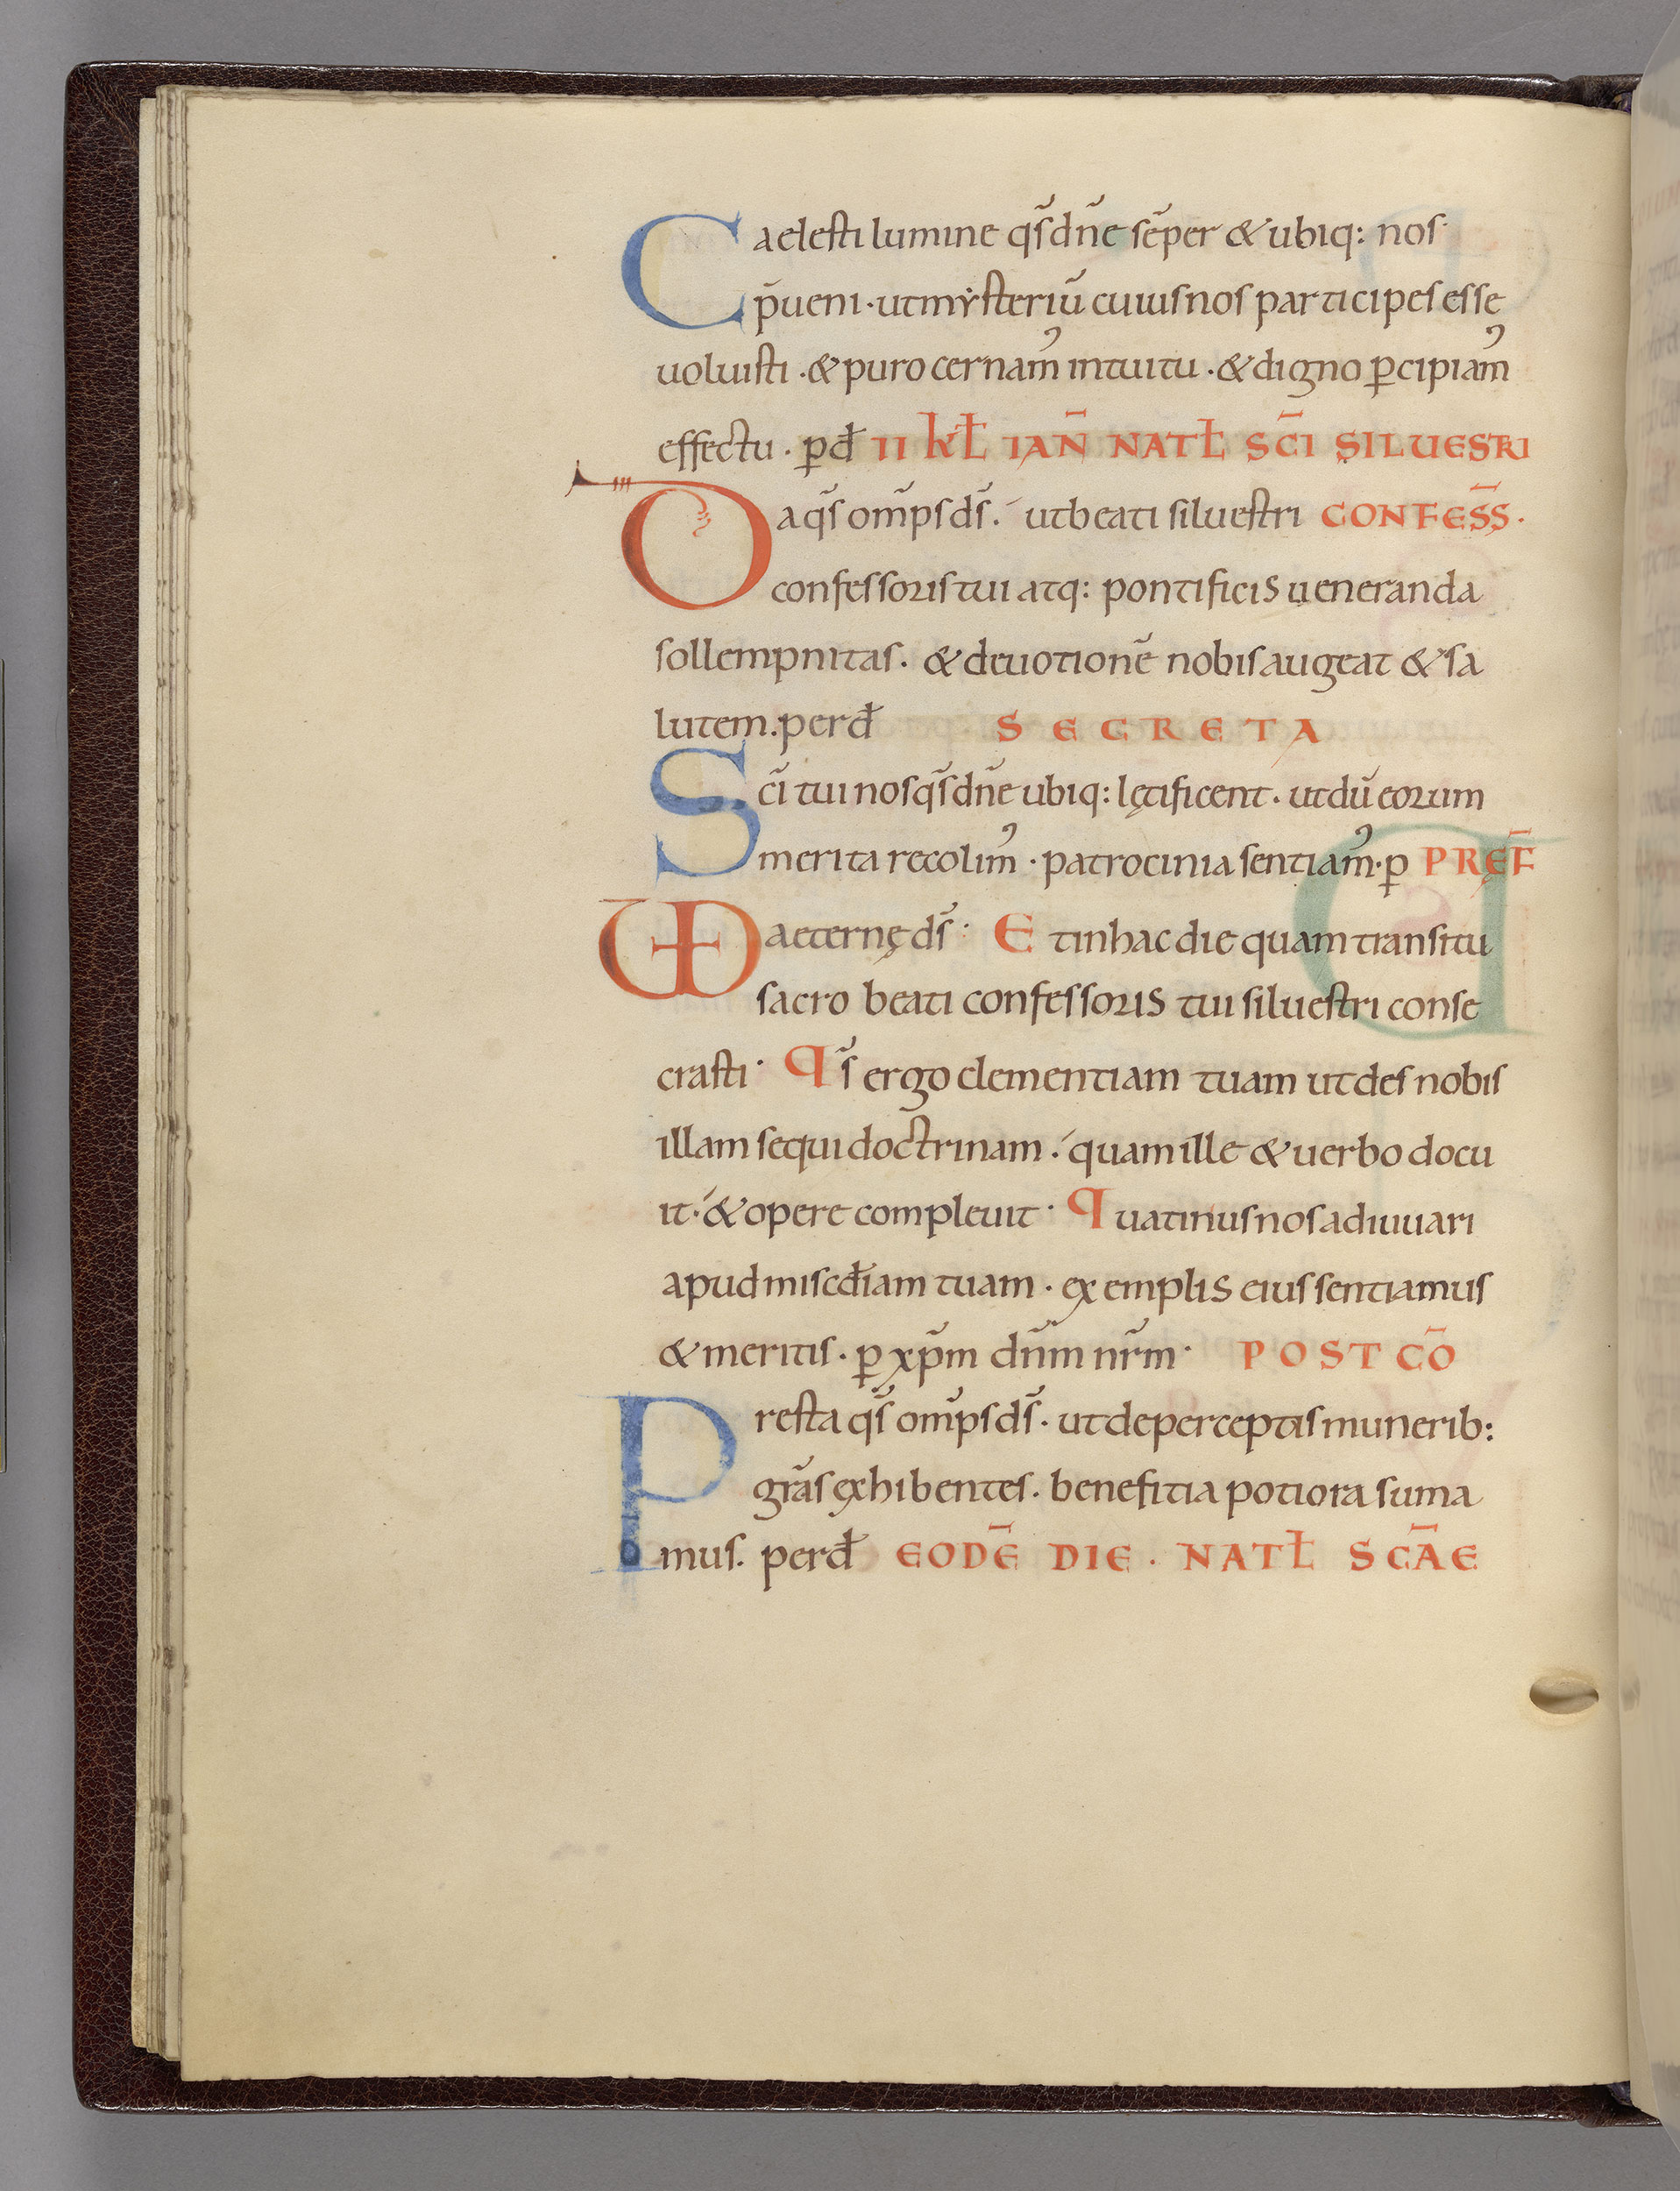 Caelesti lumine qs̃ dñe sẽper & ubiq: nos
p̃ueni · ut mẏsteriũ cuius nos participes esse
uoluisti · & puro cernam᾽ intuitu · & digno ꝑcipiam᾽
effectu · ꝑ dł II KŁ IAÑ NATŁ SC̃I SILUESTRI
Da qs̃ om̃ps ds̃ · ut beati siluestri CONFESS̃ ·
confessoris tui atq: pontificis ueneranda
sollempnitas · & deuotionẽ nobis augeat & sa
lutem. per dł SECRETA
Sc̃i tui nos qs̃ dñe ubiq: lętificent · ut dũ eorum
merita recolim᾽ · patrocinia sentiam᾽ · ꝑ PREF̃
UD aeternę ds̃ · Et in hac die quam transitu
sacro beati confessoris tui siluestri conse
crasti · Qs̃ ergo clementiam tuam ut des nobis
illam sequi doctrinam · quam ille & uerbo docu
it · & opere compleuit · Quatinus nos adiuuari
apud misc̄diam tuam · exemplis eius sentiamus
& meritis · ꝑ xp̃m dñm nr̃m · POST CÕ
Presta qs̃ om̃ps ds̃ · ut de perceptis munerib:
gr̃as exhibentes · benefitia potiora suma
mus. per dł EODẼ DIE · NATŁ SC̃AE